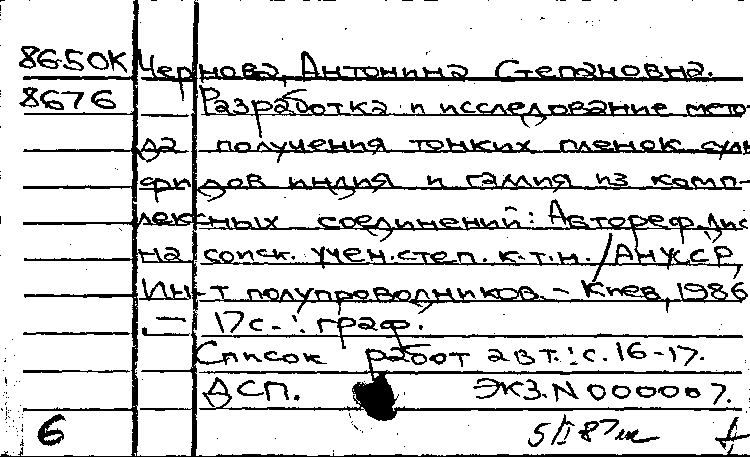 86.50К Чернова, Антонина Степановна.
8676 Разработка и исследование мето-
да получения тонких пленок суль
фидов индия и галлия из комп-
лексных соединений: Автореф. дис
на соиск. учен. степ. к.т.н. / АН УССР,
Ин-т полупроводников. – Киев, 1986
. — 17 с. : граф.
Список работ авт.: с. 16-17.
ДСП. ЭКЗ. N 000007.
6 5/I 87